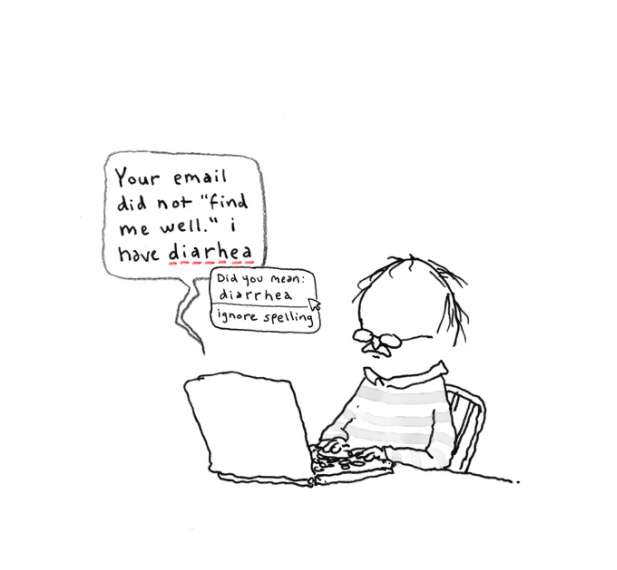 Your email
did not "find
me well." i
have diarhea
Did you mean:
diarrhea
ignore spelling